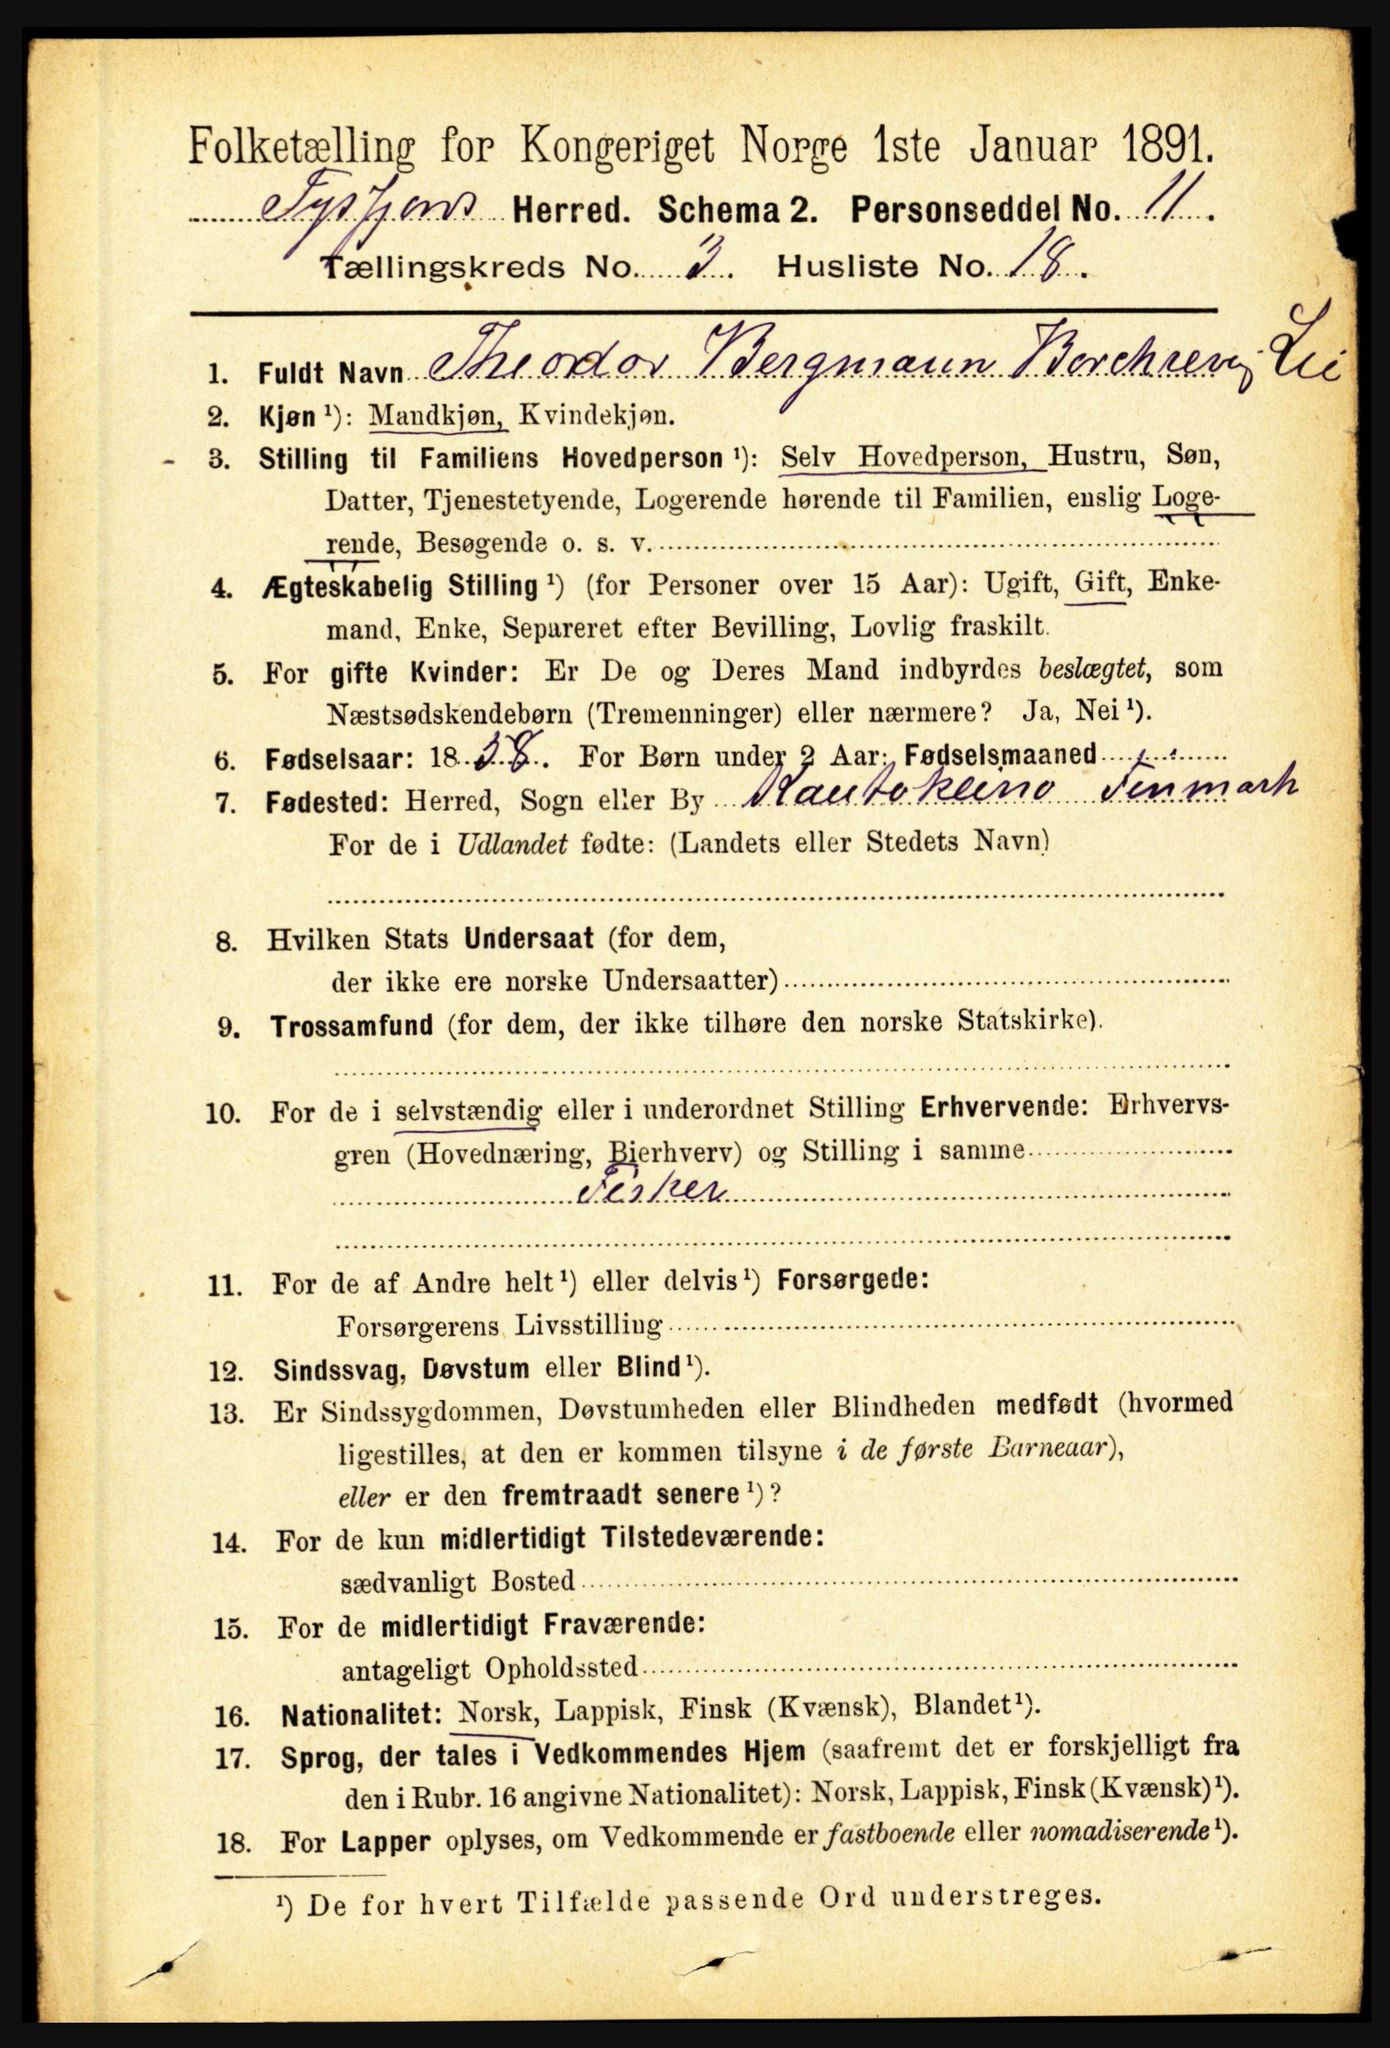 Folketælling for Kongeriget Norge 1ste Januar 1891.
Tysfjord Herred. Schema 2. Personseddel No. 11.
Tællingskreds No. 3. Husliste No. 18.
1. Fuldt Navn Theodor Bergmann Borchrevig Lie
2. Kjøn ¹): Mandkjøn, Kvindekjøn.
3. Stilling til Familiens Hovedperson ¹): Selv Hovedperson, Hustru, Søn,
Datter, Tjenestetyende, Logerende hørende til Familien, enslig Loge-
rende, Besøgende o. s. v.
4. Ægteskabelig Stilling ¹) (for Personer over 15 Aar): Ugift, Gift, Enke-
mand, Enke, Separeret efter Bevilling, Lovlig fraskilt.
5. For gifte Kvinder: Er De og Deres Mand indbyrdes beslægtet, som
Næstsødskendebørn (Tremenninger) eller nærmere? Ja, Nei ¹).
6. Fødselsaar: 1838. For Børn under 2 Aar: Fødselsmaaned
7. Fødested: Herred, Sogn eller By Kautokeino Finmark
For de i Udlandet fødte: (Landets eller Stedets Navn)
8. Hvilken Stats Undersaat (for dem,
der ikke ere norske Undersaatter)
9. Trossamfund (for dem, der ikke tilhøre den norske Statskirke).
10. For de i selvstændig eller i underordnet Stilling Erhvervende: Erhvervs-
gren (Hovednæring, Bierhverv) og Stilling i samme
Fisker
11. For de af Andre helt ¹) eller delvis ¹) Forsørgede:
Forsørgerens Livsstilling
12. Sindssvag, Døvstum eller Blind ¹).
13. Er Sindssygdommen, Døvstumheden eller Blindheden medfødt (hvormed
ligestilles, at den er kommen tilsyne i de første Barneaar),
eller er den fremtraadt senere ¹)?
14. For de kun midlertidigt Tilstedeværende:
sædvanligt Bosted
15. For de midlertidigt Fraværende:
antageligt Opholdssted
16. Nationalitet: Norsk, Lappisk, Finsk (Kvænsk), Blandet ¹).
17. Sprog, der tales i Vedkommendes Hjem (saafremt det er forskjelligt fra
den i Rubr. 16 angivne Nationalitet): Norsk, Lappisk, Finsk (Kvænsk) ¹).
18. For Lapper oplyses, om Vedkommende er fastboende eller nomadiserende ¹).
¹) De for hvert Tilfælde passende Ord understreges.